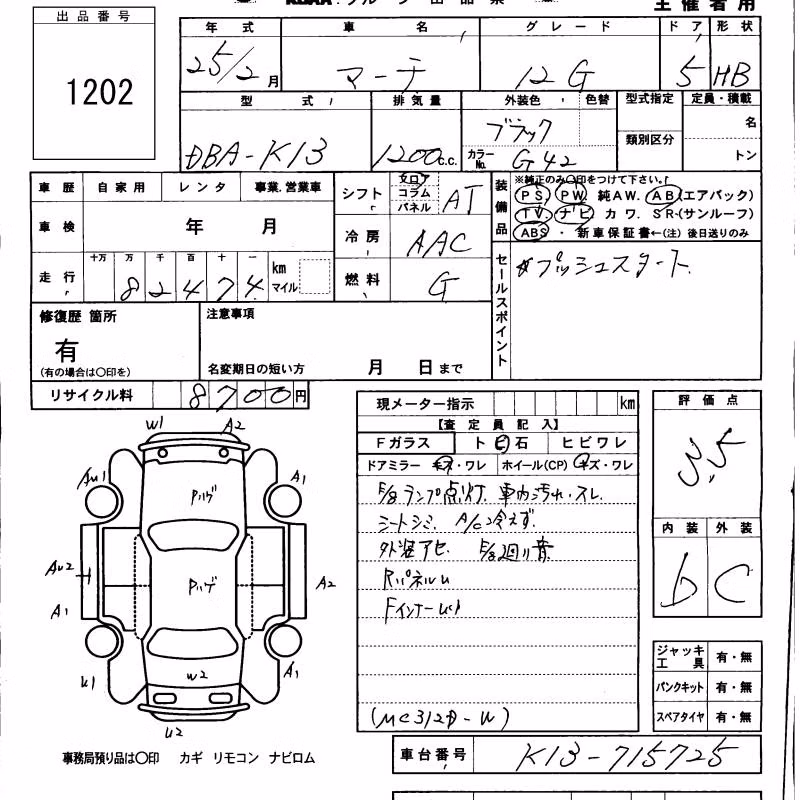 主催者用
出品番号
1202
年式 車名 グレード ドア 形状
25/2月 マーチ 12G 5 HB
型式 排気量 外装色 色替 型式指定 定員・積載
DBA-K13 1200c.c. ブラック 類別区分 名
カラーNo. G42 トン
車歴 自家用 レンタ 事業.営業車
シフト フロア コラム パネル AT
装備品 ※純正のみ〇印をつけて下さい。
PS PW 純AW. AB(エアバック)
TV ナビ カワ. SR(サンルーフ)
ABS 新車保証書←(注) 後日送りのみ
車検 年 月
冷房 AAC
走行 十万 万 千 百 十 一 km マイル
82474
燃料 G
セールスポイント プッシュスタート
修復歴 箇所
有
(有の場合は〇印を)
注意事項
名変期日の短い方 月 日まで
リサイクル料 8700円
現メーター指示 km
【査定員記入】
Fガラス トビ石 ヒビワレ
ドアミラー キズ・ワレ ホイール(CP) キズ・ワレ
E/gランプ点灯. 車内汚れ・スレ
シートシミ. A/C冷えず.
外装アセ. E/g廻り音
RパネルU
(MC312D-W)
評価点
3.5
内装 外装
b C
ジャッキ 工具 有・無
パンクキット 有・無
スペアタイヤ 有・無
W1 A2
A1
Pハゲ
AU2
Pハゲ
A2
A1
W2
U1
A1
U2
事務局預り品は〇印 カギ リモコン ナビロム
車台番号 K13-715725